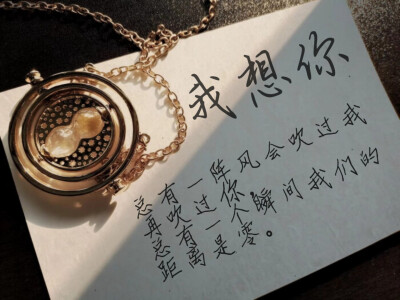 我想你
总有一阵风会吹过我
再吹过你
总有一个瞬间我们的
距离是零。